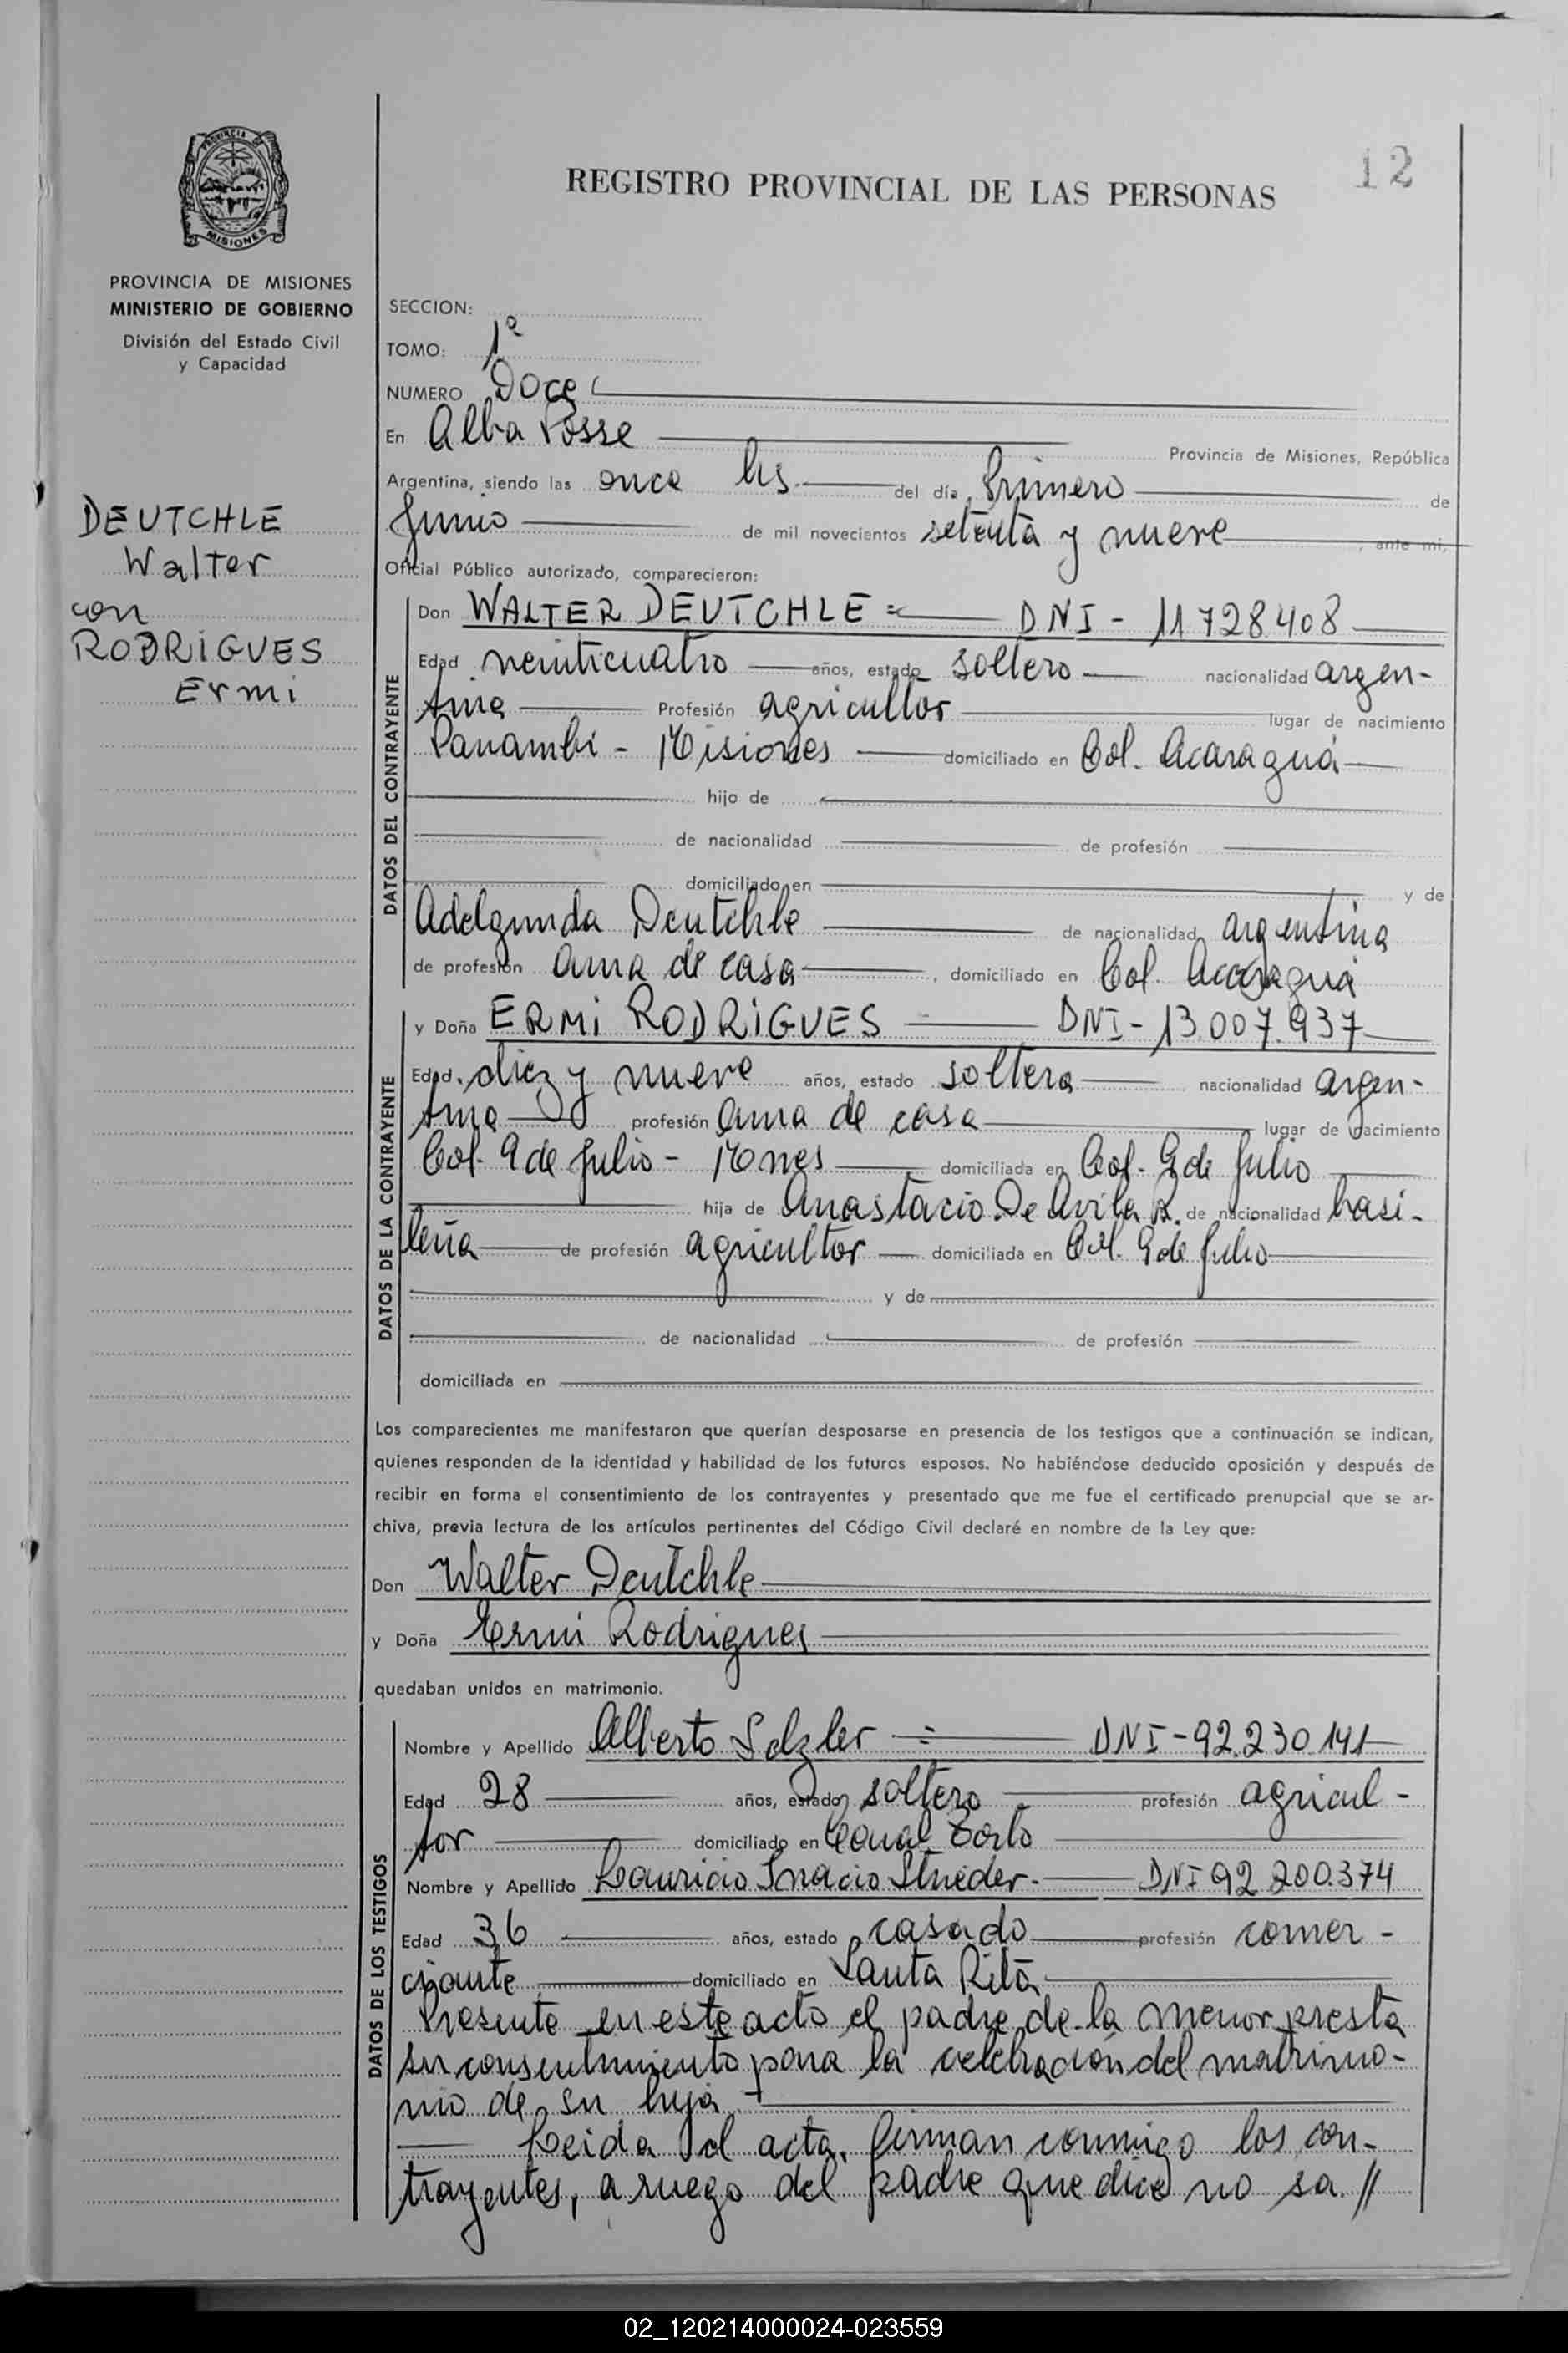 12
REGISTRO PROVINCIAL DE LAS PERSONAS
MISIONES
PROVINCIA DE MISIONES
MINISTERIO DE GOBIERNO
División del Estado Civil
y Capacidad
DEUTCHLE
Walter
con
RODRIGUES
Ermi
SECCION:
TOMO: 1º
NUMERO Doce
En Alba Posse Provincia de Misiones, República
Argentina, siendo las once hs del día Primero de
Junio de mil novecientos setenta y nueve, ante mi,
Oficial Público autorizado, comparecieron:
DATOS DEL CONTRAYENTE
Don WALTER DEUTCHLE = DNI - 11728408
Edad veinticuatro años, estado soltero nacionalidad argen-
tina Profesión agricultor lugar de nacimiento
Panambi - Misiones domiciliado en Col. Acaragua
hijo de
de nacionalidad de profesión
domiciliado en y de
Adelgunda Deutchle de nacionalidad argentina
de profesión ama de casa, domiciliado en Col. Acaragua
DATOS DE LA CONTRAYENTE
y Doña ERMI RODRIGUES DNI - 13.007.937
Edad diez y nueve años, estado soltera nacionalidad argen-
tina profesión ama de casa lugar de nacimiento
Col. 9 de Julio - Mnes domiciliada en Col. 9 de Julio
hija de Anastacio De Avila R. de nacionalidad basi-
leña de profesión agricultor domiciliada en Col. 9 de Julio
y de
de nacionalidad de profesión
domiciliada en
Los comparecientes me manifestaron que querían desposarse en presencia de los testigos que a continuación se indican,
quienes responden de la identidad y habilidad de los futuros esposos. No habiéndose deducido oposición y después de
recibir en forma el consentimiento de los contrayentes y presentado que me fue el certificado prenupcial que se ar-
chiva, previa lectura de los artículos pertinentes del Código Civil declaré en nombre de la Ley que:
Don Walter Deutchle
y Doña Ermi Rodrigues
quedaban unidos en matrimonio.
DATOS DE LOS TESTIGOS
Nombre y Apellido Alberto DNI - 92.230.141
Edad 28 años, estado soltero profesión agricul-
tor domiciliado en Canal Torto
Nombre y Apellido Lauricio Inacio DNI 92.200.374
Edad 36 años, estado casado profesión comer-
ciante domiciliado en Santa Rita
Presente en este acto el padre de la menor presta
su consentimiento para la celebracion del matrimo-
nio de su hija.
Leida el acta, firman conmigo los con-
trayentes, a ruego del padre que dice no sa //
02_120214000024-023559